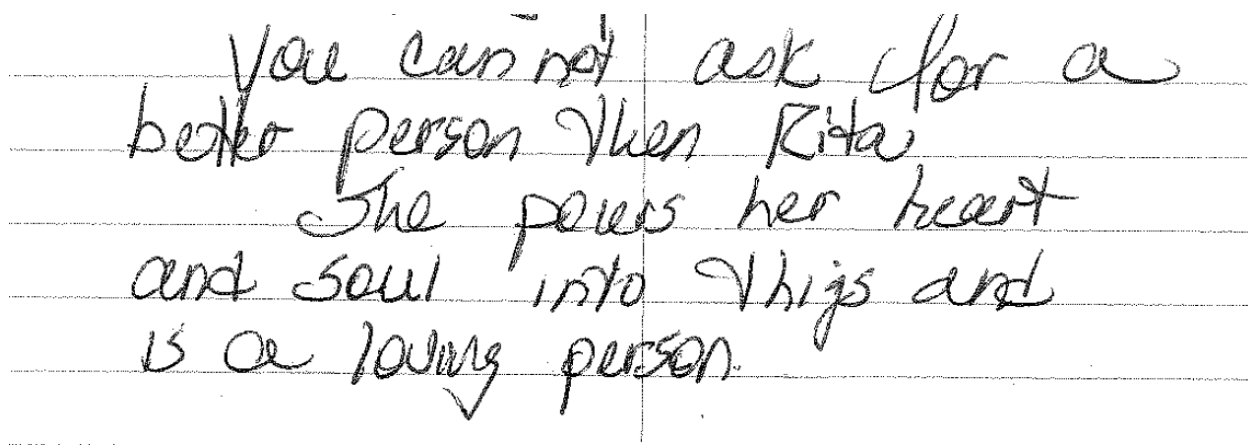 You can not ask for a
better person then Rita
She pours her heart
and soul into thigs and
is a loving person.